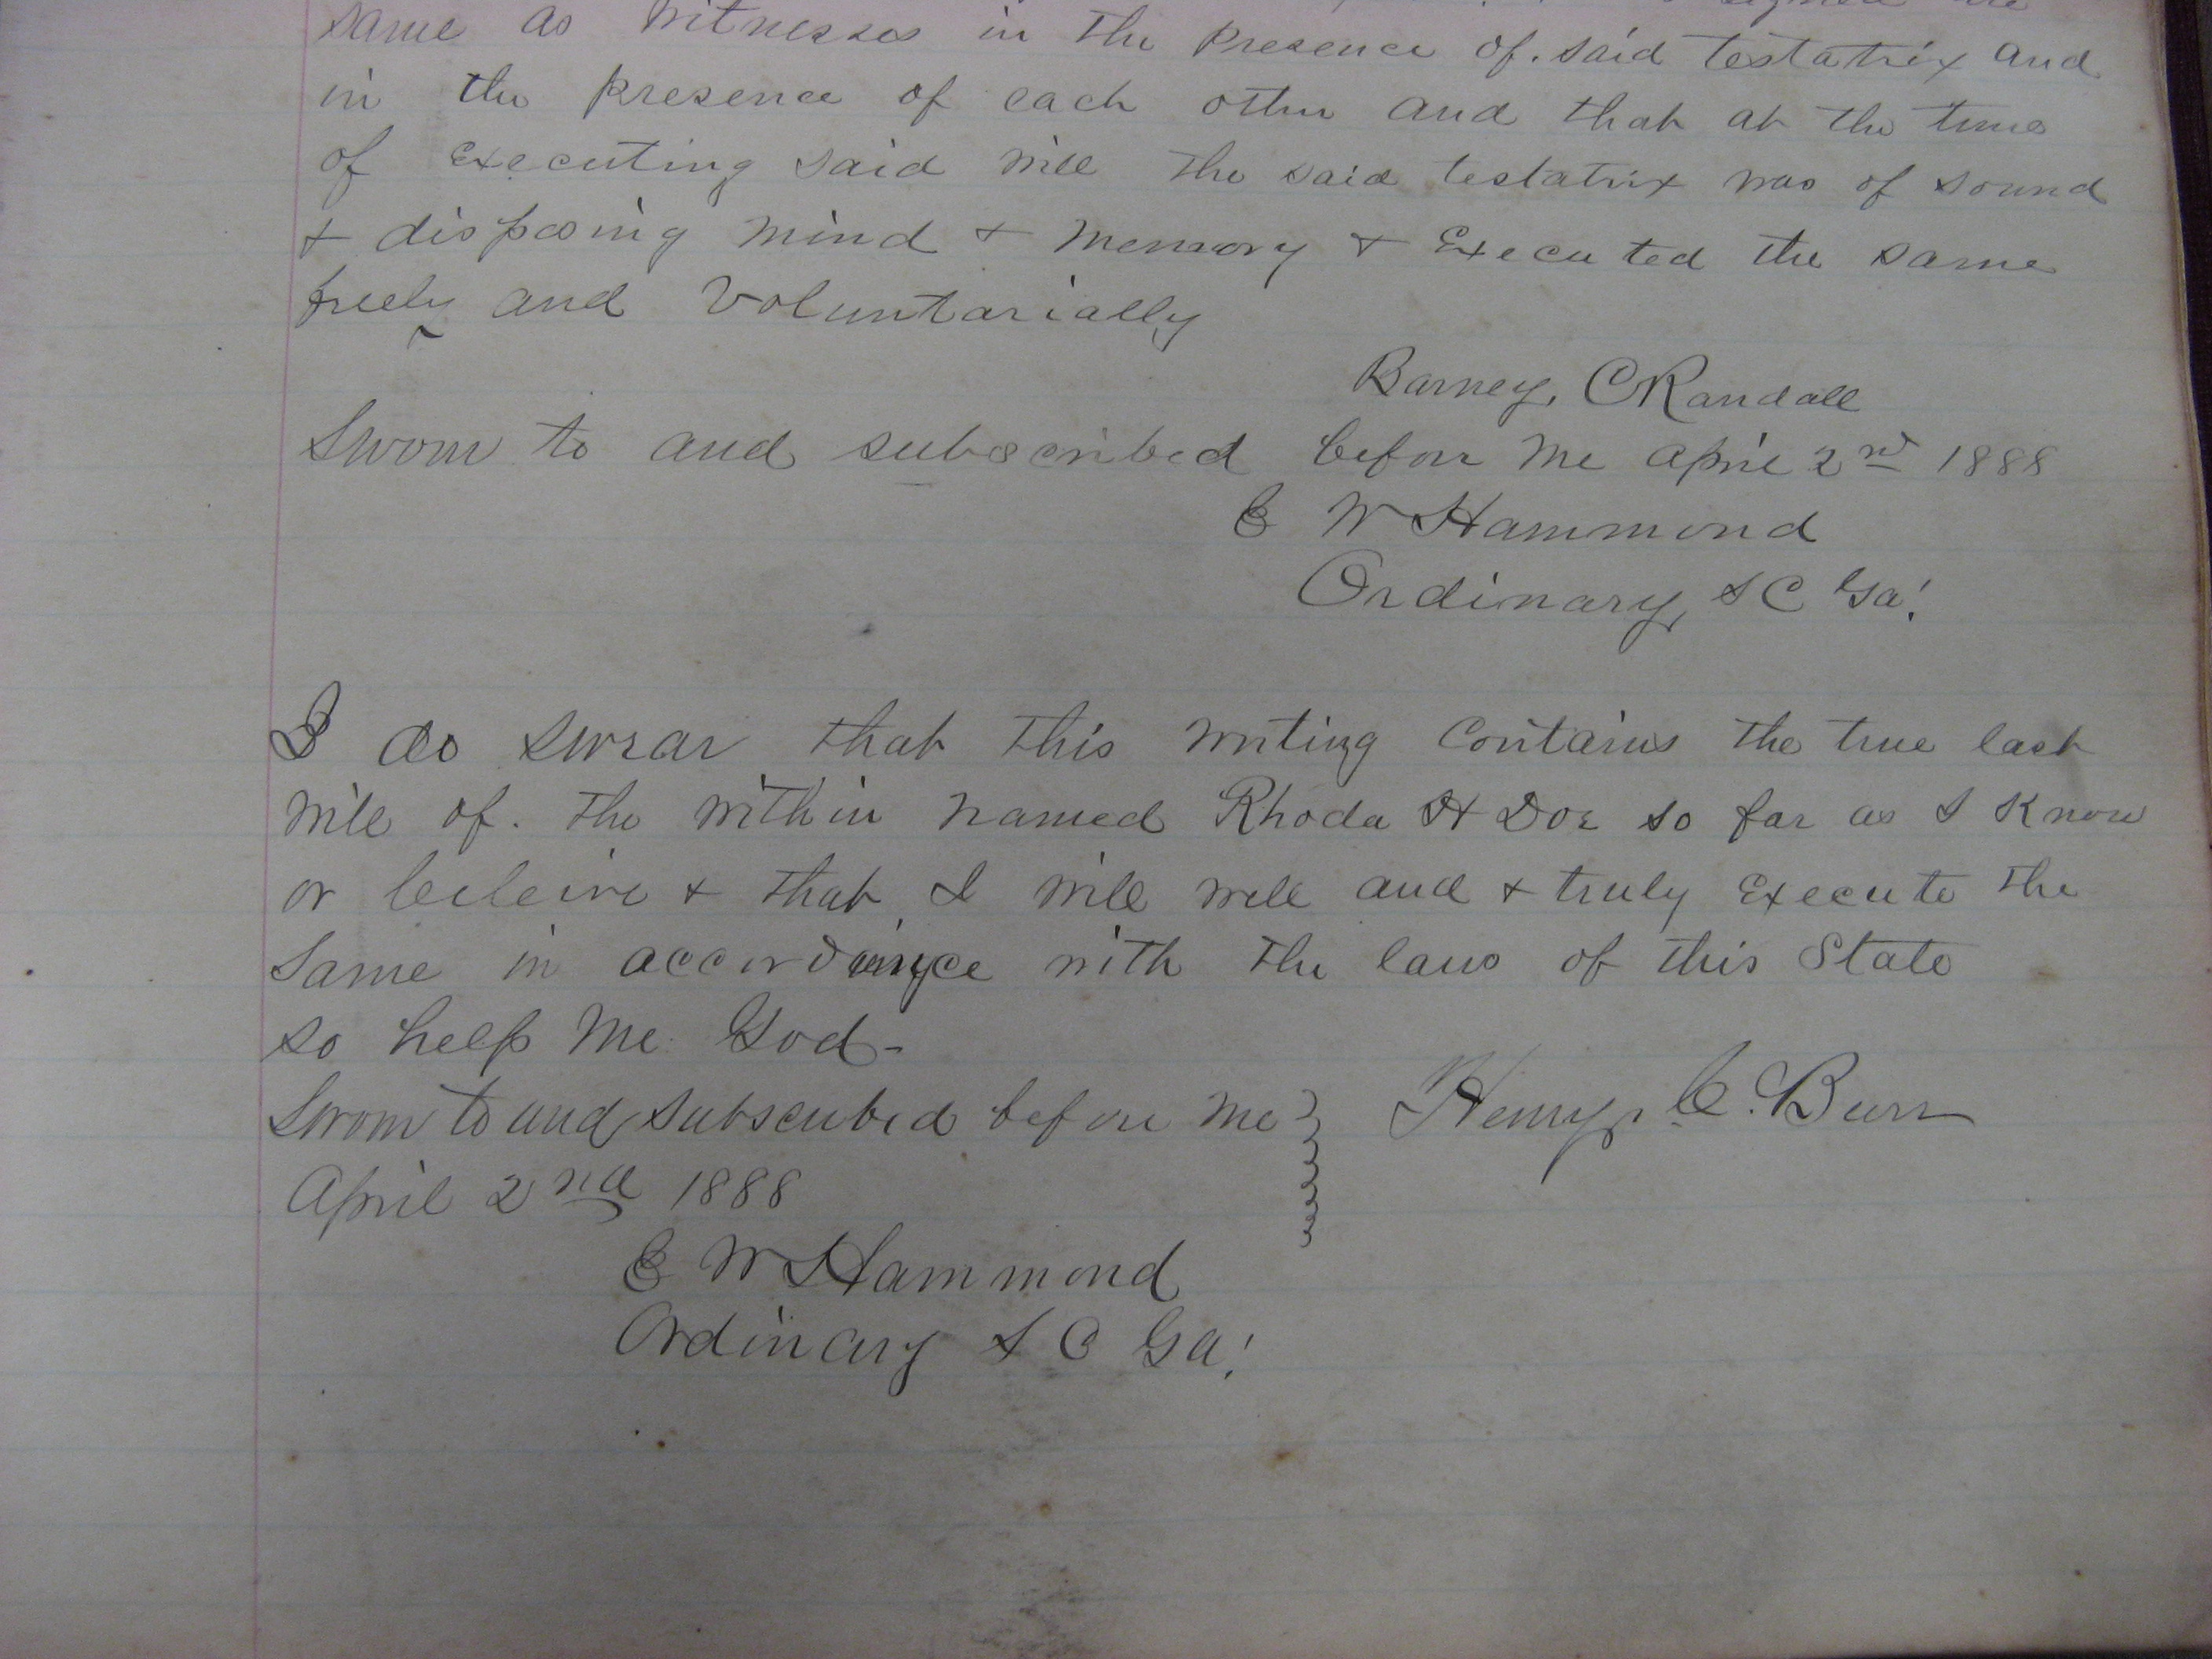 same as witnesses in the presence of. said testatrix and
in the presence of each other and that at the time
of executing said will the said testatrix was of sound
& disposing mind & memory & Executed the same
freely and voluntarially
Barney, C Randall
Sworn to and subscribed before me april 2nd 1888
E W Hammond
Ordinary, S C Ga!
I do swear that this writing Contains the true last
will of. the within named Rhoda H Doe so far as I Know
or beleive & that I will well and & truly Execute the
same in accordance with the laws of this State
so help me God-
Sworn to and subscribed before me
Henry C. Burr
April 2nd 1888
E W Hammond
Ordinary S C Ga!